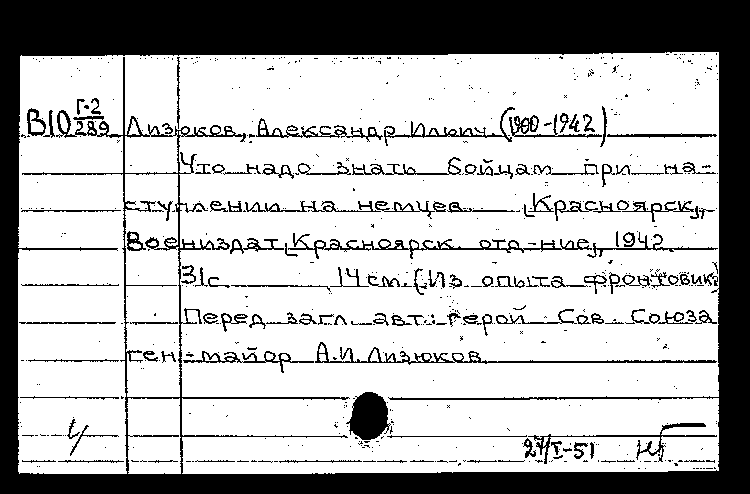 В10 Г-2/289 Лизюков, Александр Ильич (1900-1942)
Что надо знать бойцам при на-
ступлении на немцев. [Красноярск],
Воениздат [Красноярск. отд-ние], 1942.
31с. 14 см. (Из опыта фронтовик)
Перед загл. авт.: герой Сов. Союза
ген-майор А.И. Лизюков.
27/I-51